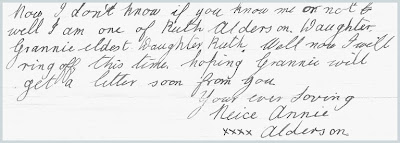 Now I don't know if you know me or not to
well I am one of Ruth Alderson. Daughter
Grannie eldest Daughter Ruth. Well now I will
ring off this time, hoping Grannie will
get a litter soon from you
Your ever loving
Neice Annie
xxxx Alderson